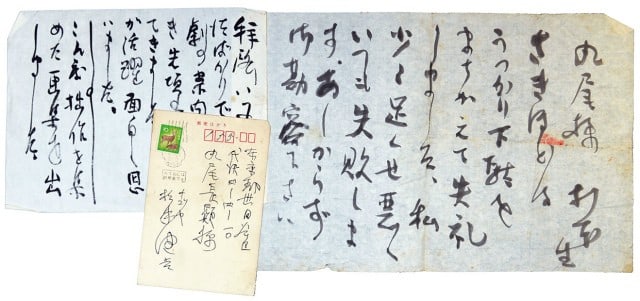 丸尾様 杉本生
さきほどは
うっかり下駄を
まちがえて失礼
しました、私
少々足くせ悪く
いつも失敗しま
す、あしからず
御勘容下さい
拝啓 いつ
ばかりで
劇の案内
き先頃
てきました
が活躍 面白く思
いました。
この度拙作を集
めた画集を出
しました
郵便はがき
東京都世田谷区
代沢四ー四ー一〇
丸尾長顕様
なごや
杉本健吉